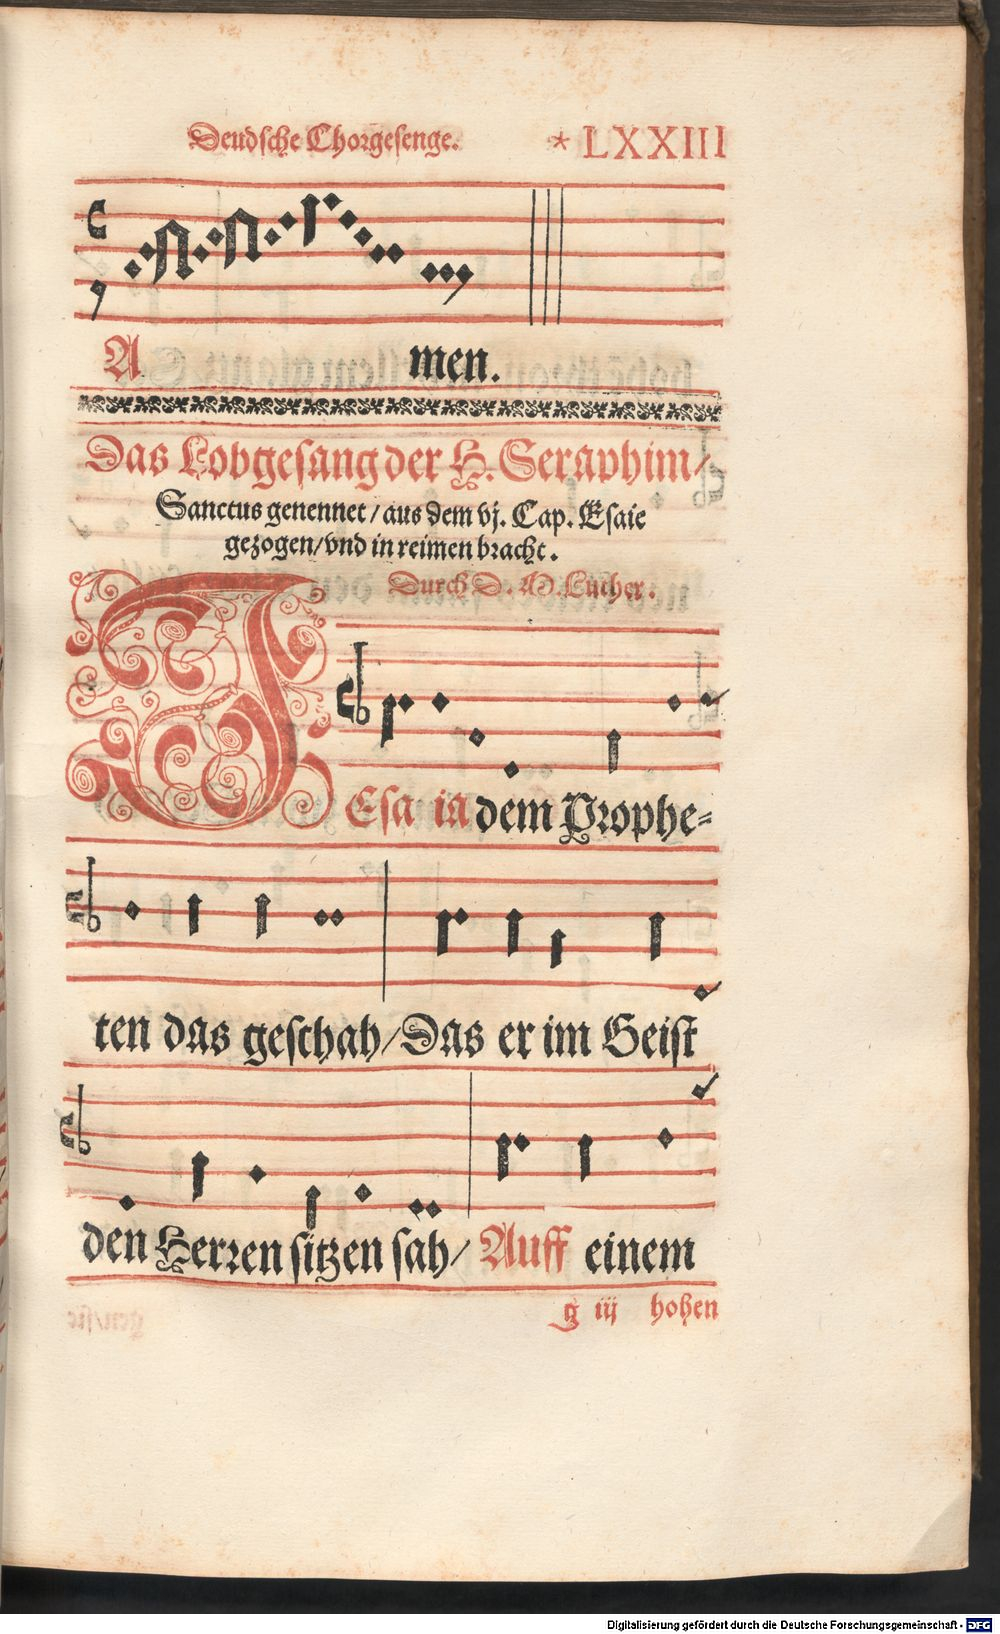 Deudsche Chorgesenge. * LXXIII
A men.
Das Lobgesang der H. Seraphim/
Sanctus genennet / aus dem vj. Cap. Esaie
gezogen/vnd in reimen bracht.
Durch D. M. Luther.
JEsa ia dem Prophe⸗
ten das geschah/Das er im Geist
den Herren sitzen sah/ Auff einem
g iij hohen
Digitalisierung gefördert durch die Deutsche Forschungsgemeinschaft - DFG